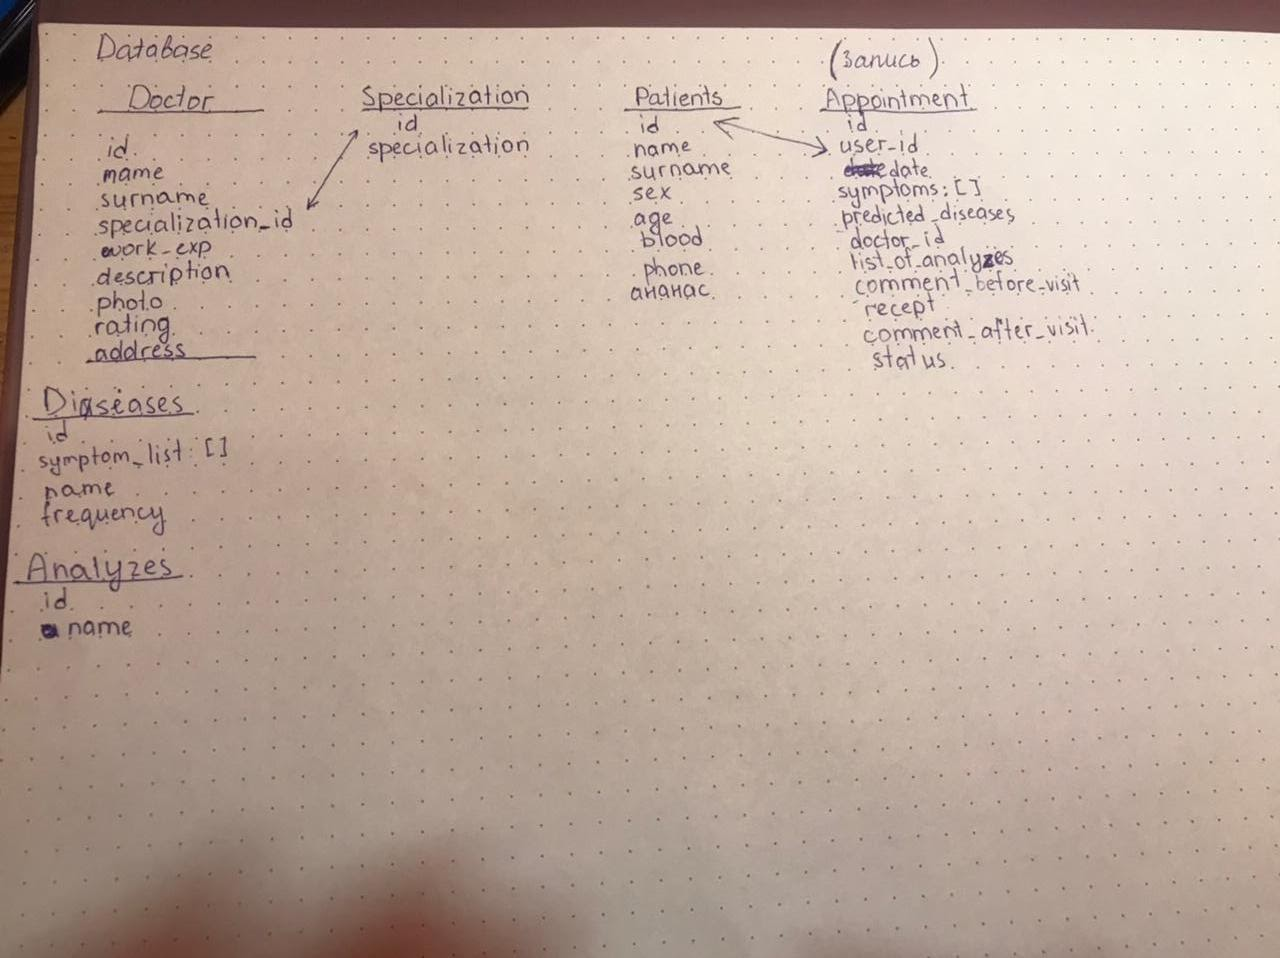 Database
Doctor
id
name
surname
specialization_id
work_exp
description
photo
rating
address
Specialization
id
specialization
Patients
id
name
surname
sex
age
blood
phone
ананас
(Запись)
Appointment
id
user_id
date
symptoms: []
predicted_diseases
doctor_id
list_of_analyzes
comment_before_visit
recept
comment_after_visit
status
Diaseases
id
symptom_list: []
name
frequency
Analyzes
id
name